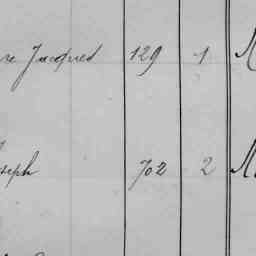 re Jacques 129 1 M
seph 702 2 M